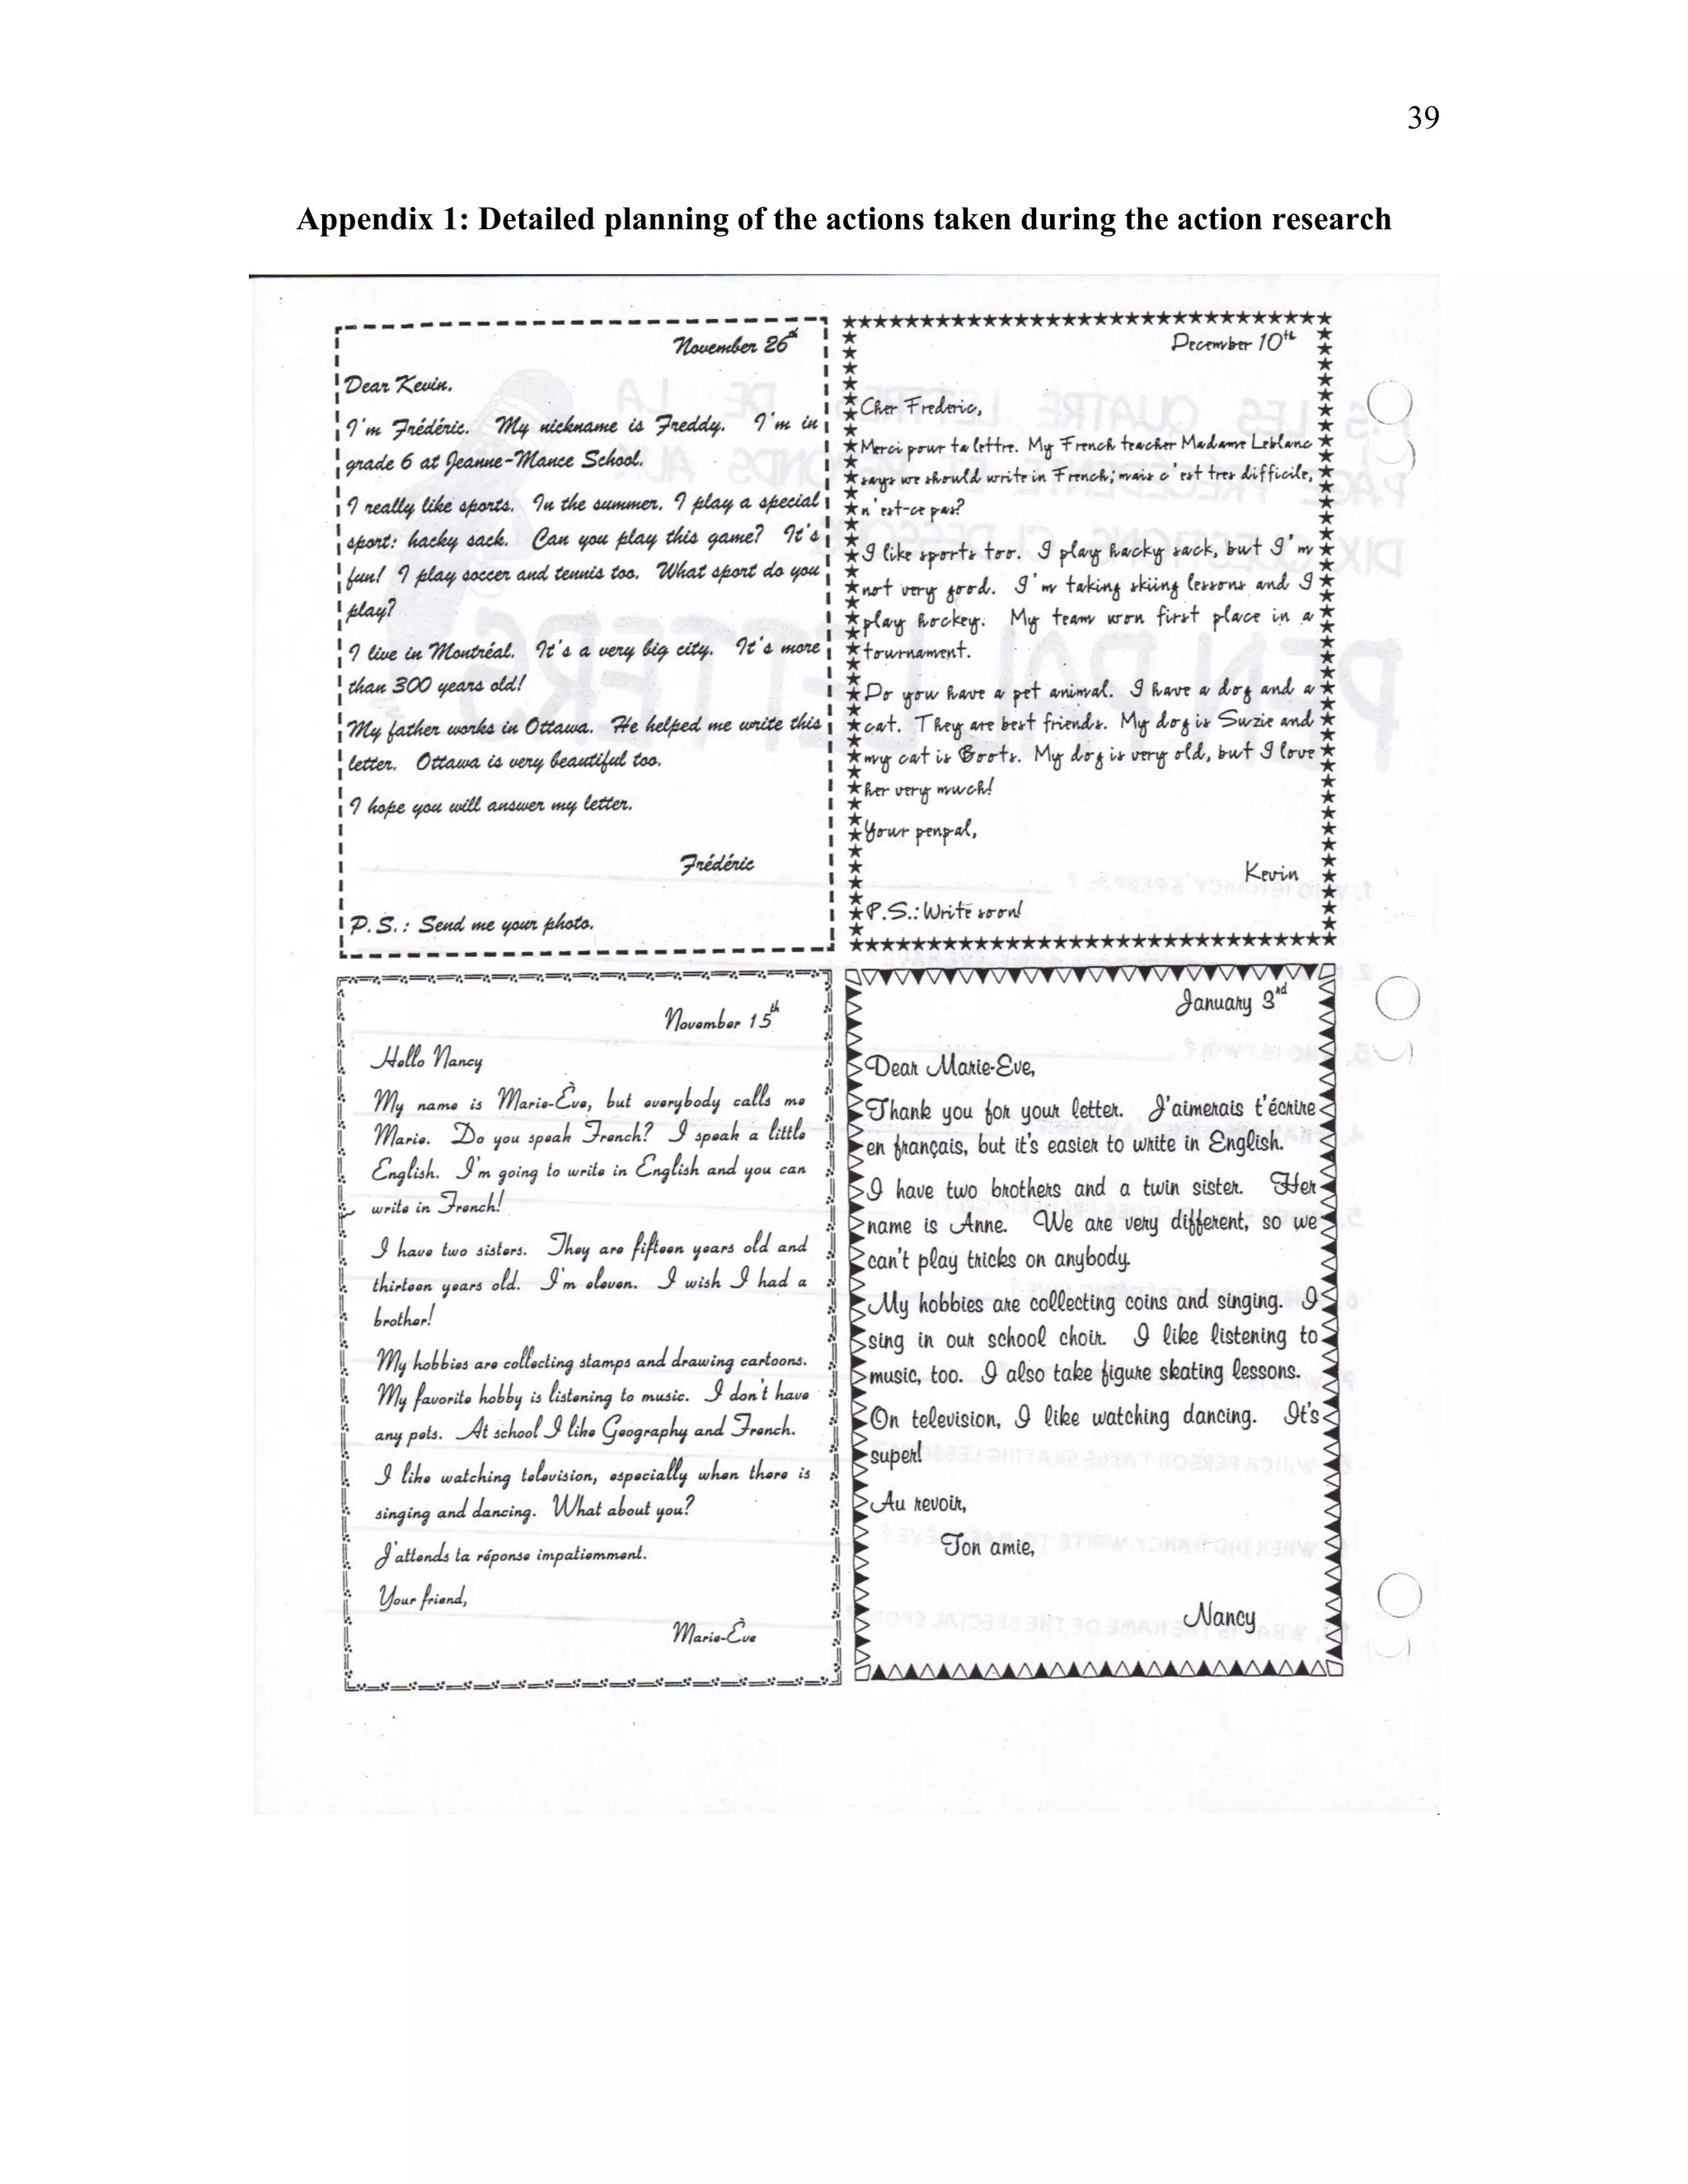 39
Appendix 1: Detailed planning of the actions taken during the action research
November 26th
Dear Kevin.
I'm Frédéric. My nickname is Freddy. I'm in
grade 6 at Jeanne-Mance School.
I really like sports. In the summer, I play a special
sport: hacky sack. Can you play this game? It's
fun! I play soccer and tennis too. What sport do you
play?
I live in Montréal. It's a very big city. It's more
than 300 years old!
My father works in Ottawa. He helped me write this
letter. Ottawa is very beautiful too.
I hope you will answer my letter.
Frédéric
P.S.: Send me your photo.
December 10th
Cher Frederic,
Merci pour ta lettre. My French teacher Madame Leblanc
says we should write in French; mais c'est tres difficile,
n'est-ce pas?
I like sports too. I play hacky sack, but I'm
not very good. I'm taking skiing lessons and I
play hockey. My team won first place in a
tournament.
Do you have a pet animal. I have a dog and a
cat. They are best friends. My dog is Suzie and
my cat is Boots. My dog is very old, but I love
her very much!
Your penpal,
Kevin
P.S.: Write soon!
November 15th
Hello Nancy
My name is Marie-Ève, but everybody calls me
Marie. Do you speak French? I speak a little
English. I'm going to write in English and you can
write in French!
I have two sisters. They are fifteen years old and
thirteen years old. I'm eleven. I wish I had a
brother!
My hobbies are collecting stamps and drawing cartoons.
My favorite hobby is listening to music. I don't have
any pets. At school I like Geography and French.
I like watching television, especially when there is
singing and dancing. What about you?
J'attends ta réponse impatiemment.
Your friend,
Marie-Ève
January 3rd
Dear Marie-Eve,
Thank you for your letter. J'aimerais t'écrire
en français, but it's easier to write in English.
I have two brothers and a twin sister. Her
name is Anne. We are very different, so we
can't play tricks on anybody.
My hobbies are collecting coins and singing. I
sing in our school choir. I like listening to
music, too. I also take figure skating lessons.
On television, I like watching dancing. It's
super!
Au revoir,
Ton amie,
Nancy